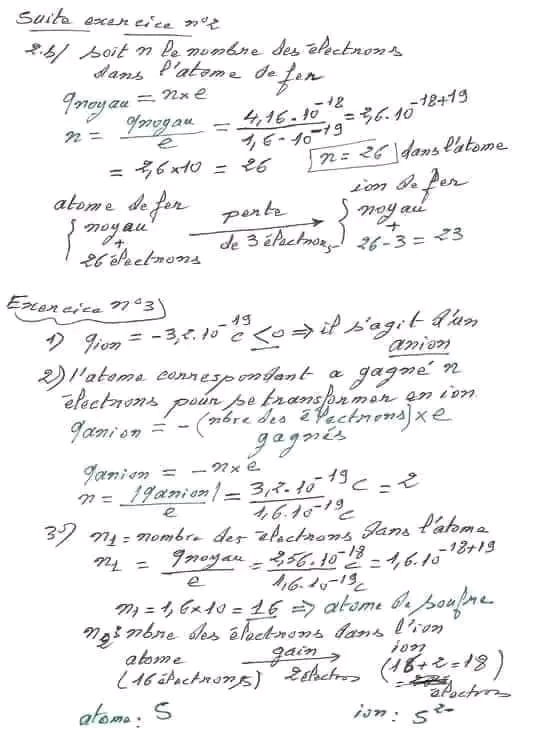 Suite exercice n°2
2.b/ soit n le nombre des électrons
dans l'atome de fer
qnoyau = n×e
n = qnoyau/e = 4,16.10^-18/1,6.10^-19 = 2,6.10^-18+19
= 2,6×10 = 26 n = 26 dans l'atome
atome de fer ion de fer
{ noyau perte { noyau
+ de 3 électrons +
26 électrons 26-3 = 23
Exercice n°3
1) qion = -3,2.10^-19 c < 0 ⇒ il s'agit d'un
anion
2) l'atome correspondant a gagné n
électrons pour se transformer en ion
qanion = -(nbre des électrons)×e
gagnés
qanion = -n×e
n = |qanion|/e = 3,2.10^-19 c/1,6.10^-19 c = 2
3°/ n1 = nombre des électrons dans l'atome
n1 = qnoyau/e = 2,56.10^-18 c/1,6.10^-19 c = 1,6.10^-18+19
n1 = 1,6×10 = 16 ⇒ atome de soufre
n2 : nbre des électrons dans l'ion
atome gain ion
(16 électrons) 2 électros (16+2 = 18)
électros
atome : S ion : S^2-